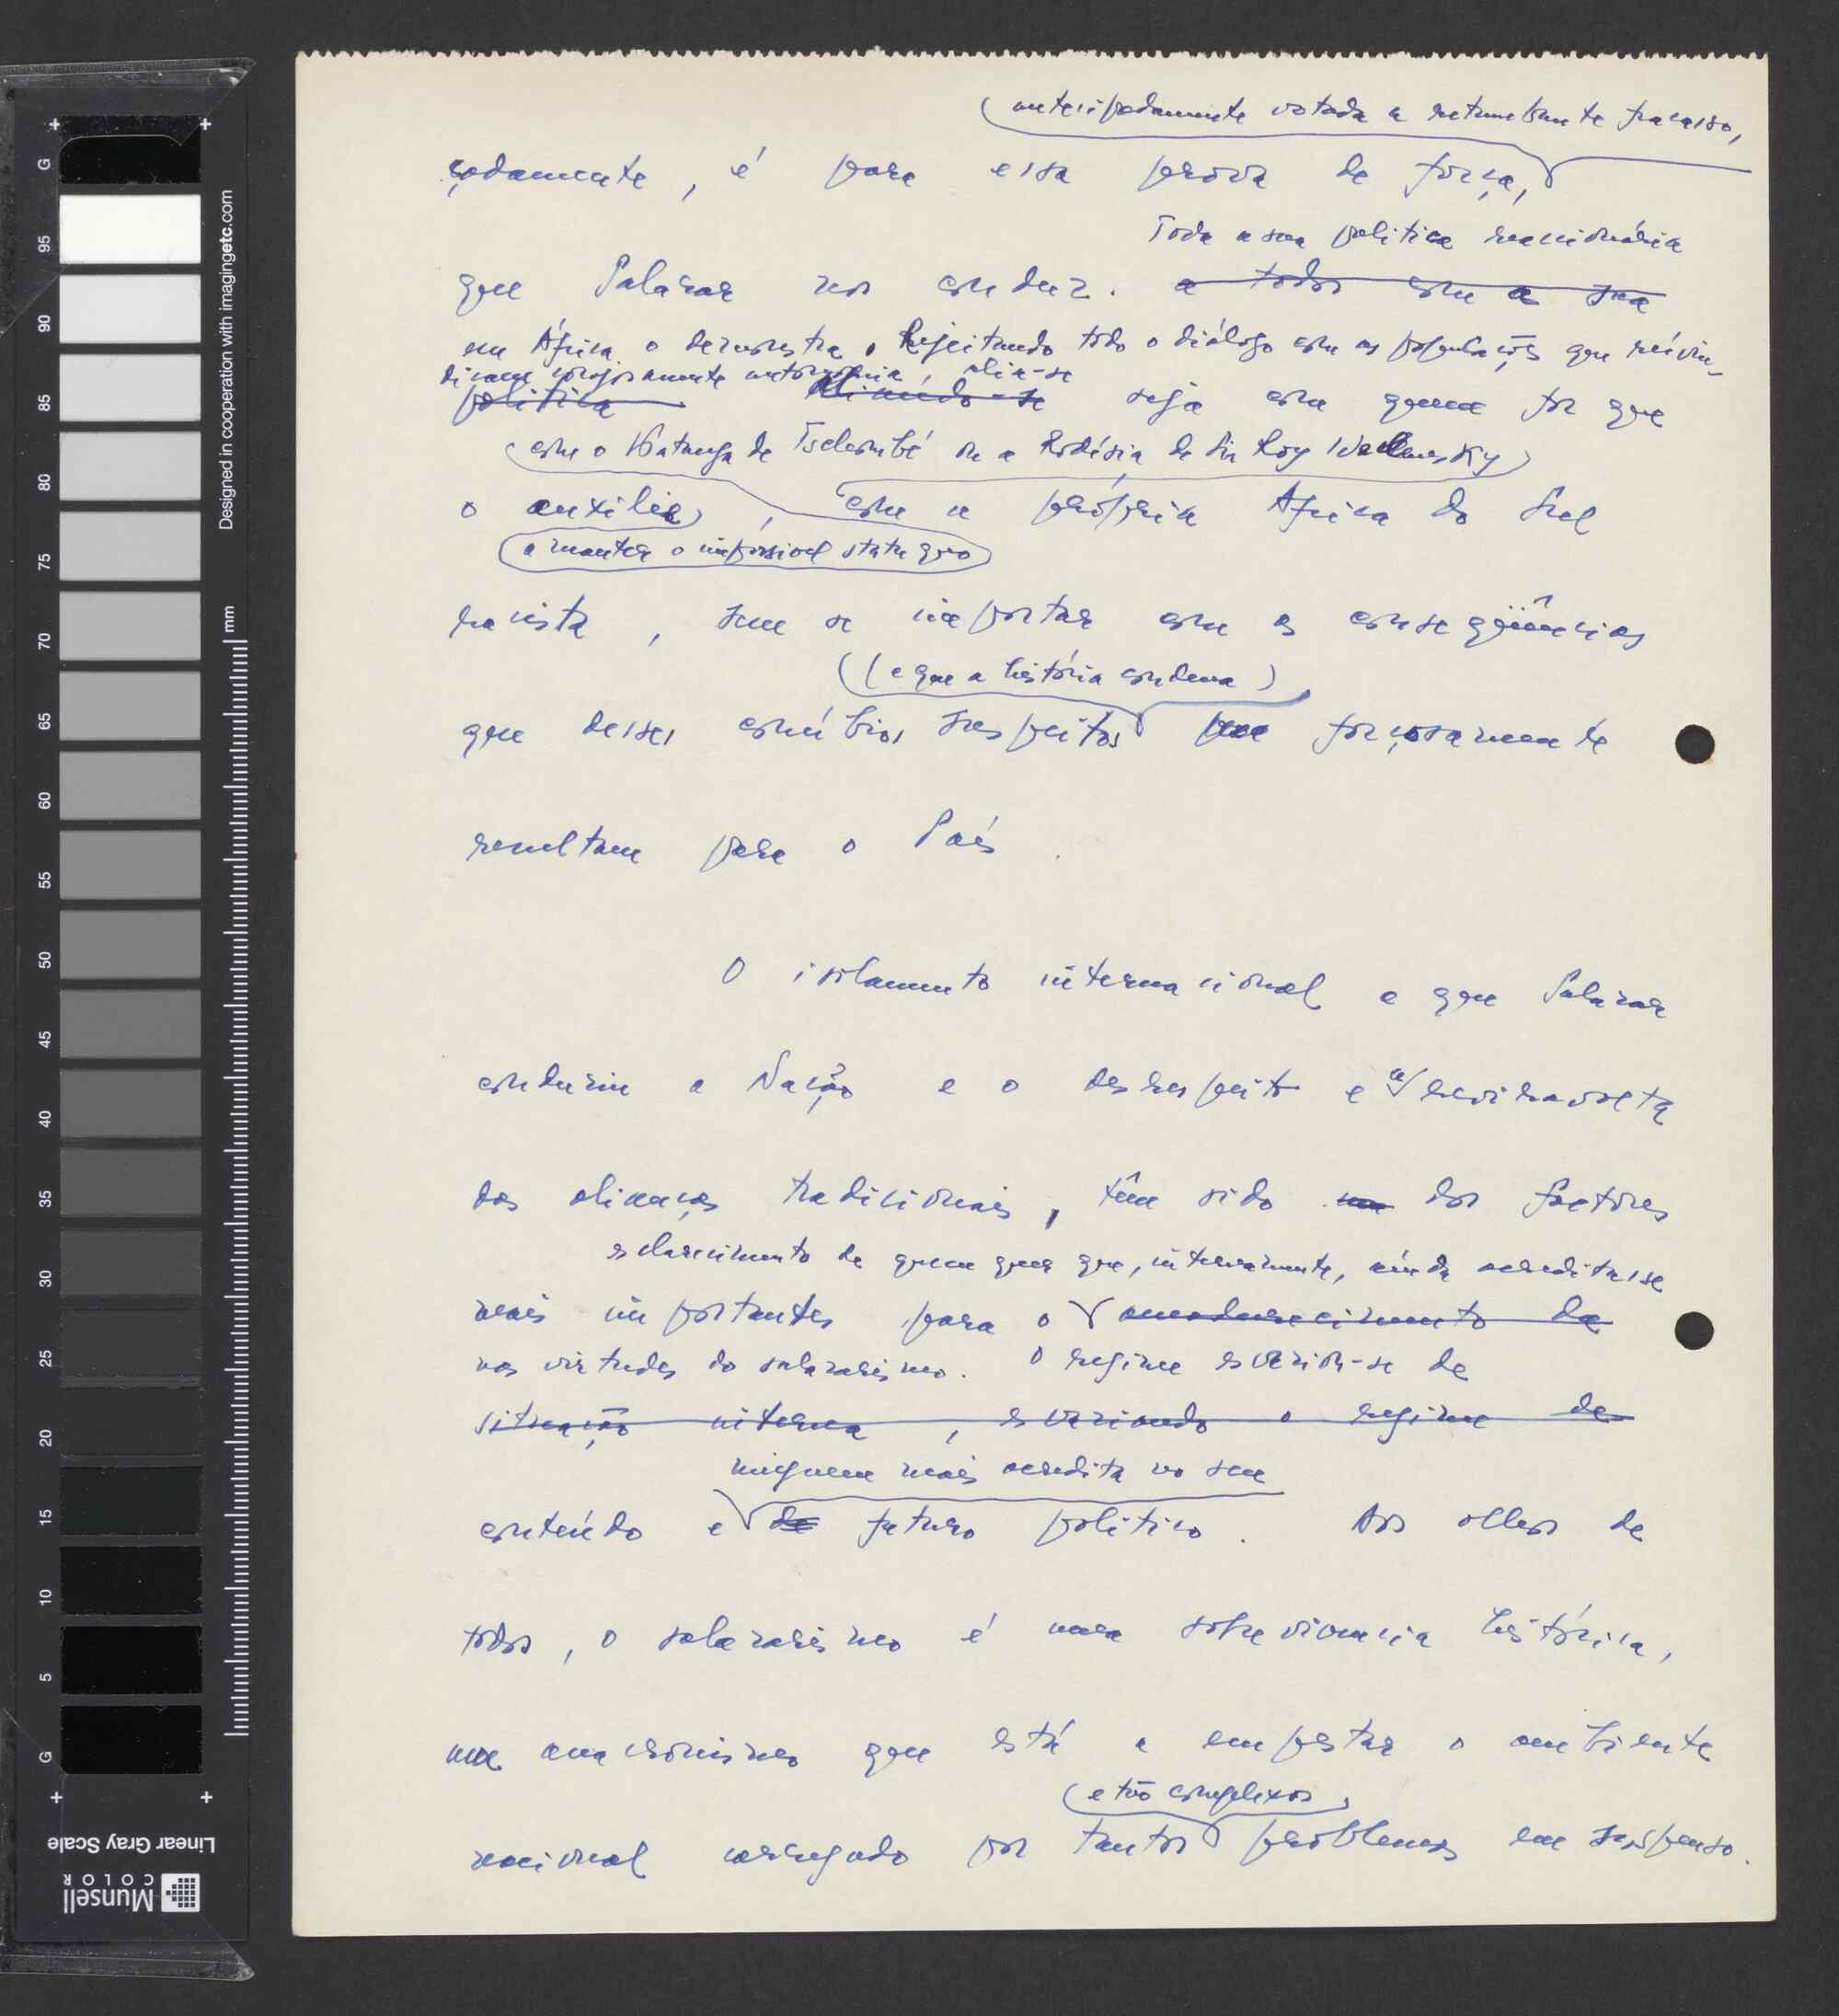 antecipadamente votada a retumbante fracasso,
çadamente, é para essa prova de força,
Toda a sua politica reacionária
que Salazar nos conduz. a todos com a sua
em África o demonstra. Rejeitando todo o diálogo com as populações que reivin-
dicam corajosamente autonomia, alia-se
politica aliando-se seja com quem for que
com o Katanga de Tschombé ou a Rodésia de Sir Roy Wellensky
o auxilie, com a própria Africa do Sul
a manter o impossivel statu quo
racista, sem se importar com as conseqüências
(e que a história condena)
que desses conúbios suspeitos forçosamente
resultam para o País.
O isolamento internacional a que Salazar
conduziu a Nação e o desrespeito e a reviravolta
das alianças tradicionais, têm sido um dos factores
esclarecimento de quem quer que, internamente, ainda acreditasse
mais importantes para o amadurecimento da
nas virtudes do salazarismo. O regime esvaziou-se de
situação interna, esvaziando o regime de
ninguem mais acredita no seu
conteúdo e de futuro politico. Aos olhos de
todos, o salazarismo é uma sobrevivencia histórica,
um anacronismo que está a empestar o ambiente
e tão complexos
nacional carregado por tantos problemas em suspenso.
G 95 90 85 80 75 70 65 60 55 50 45 40 35 30 25 20 15 10 5 G
mm
Designed in cooperation with imagingetc.com
Linear Gray Scale
Munsell
COLOR